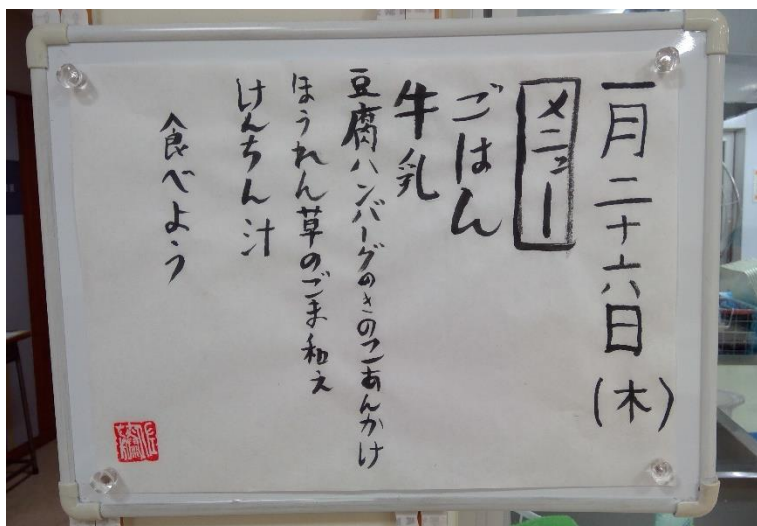 一月二十六日(木)
メニュー
ごはん
牛乳
豆腐ハンバーグのきのこあんかけ
ほうれん草のごま和え
けんちん汁
食べよう